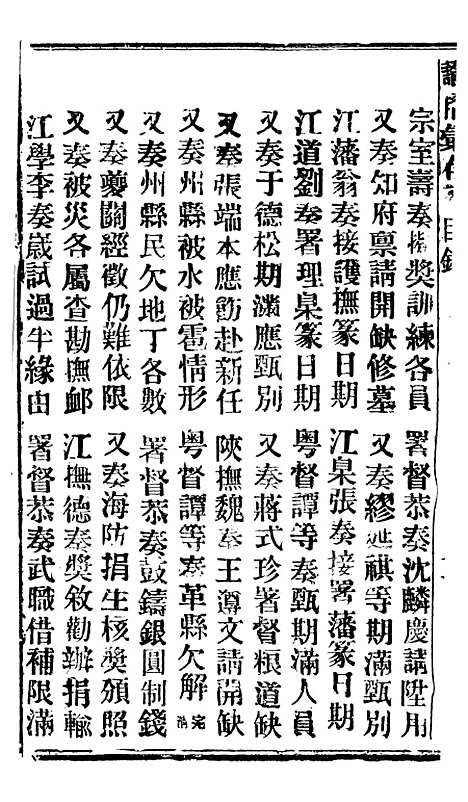 目錄
宗室壽奏擬獎訓練各員
署督恭奏沈麟慶請陞用
又奏知府稟請開缺修墓
又奏繆延祺等期滿甄別
江藩翁奏接護撫篆日期
江臬張奏接署藩篆日期
江道劉奏署理臬篆日期
粵督譚等奏甄期滿人員
又奏于德松期滿應甄別
又奏蔣式珍署督糧道缺
又奏張端本應飭赴新任
陝撫魏奏王遵文請開缺
又奏州縣被水被雹情形
粵督譚等奏革縣欠解完清
又奏州縣民欠地丁各數
署督恭奏鼓鑄銀圓制錢
又奏夔關經徵仍難依限
又奏海防捐生核獎頒照
又奏被災各屬查勘撫卹
江撫德奏獎敘勸辦捐輸
江學李奏歲試過半緣由
署督恭奏武職借補限滿